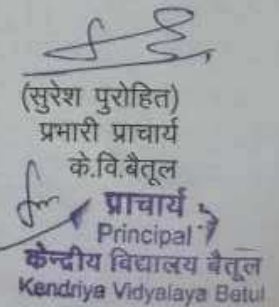 (सुरेश पुरोहित)
प्रभारी प्राचार्य
के.वि.बैतूल
for
प्राचार्य
Principal
केन्द्रीय विद्यालय बैतूल
Kendriya Vidyalaya Betul